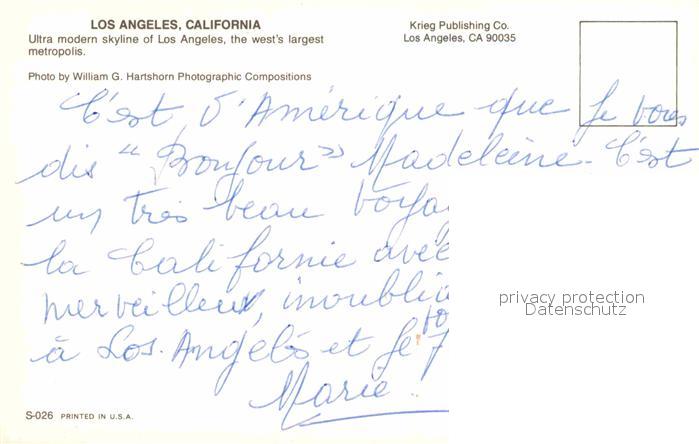 LOS ANGELES, CALIFORNIA
Ultra modern skyline of Los Angeles, the west's largest
metropolis.
Photo by William G. Hartshorn Photographic Compositions
Krieg Publishing Co.
Los Angeles, CA 90035
C'est d'Amérique que je vous
dis "Bonjour" Madeleine - C'est
un très beau voya
la Californie avec
merveilleux, inoublia
à Los Angelès et je
Marie.
privacy protection
Datenschutz
S-026 PRINTED IN U.S.A.